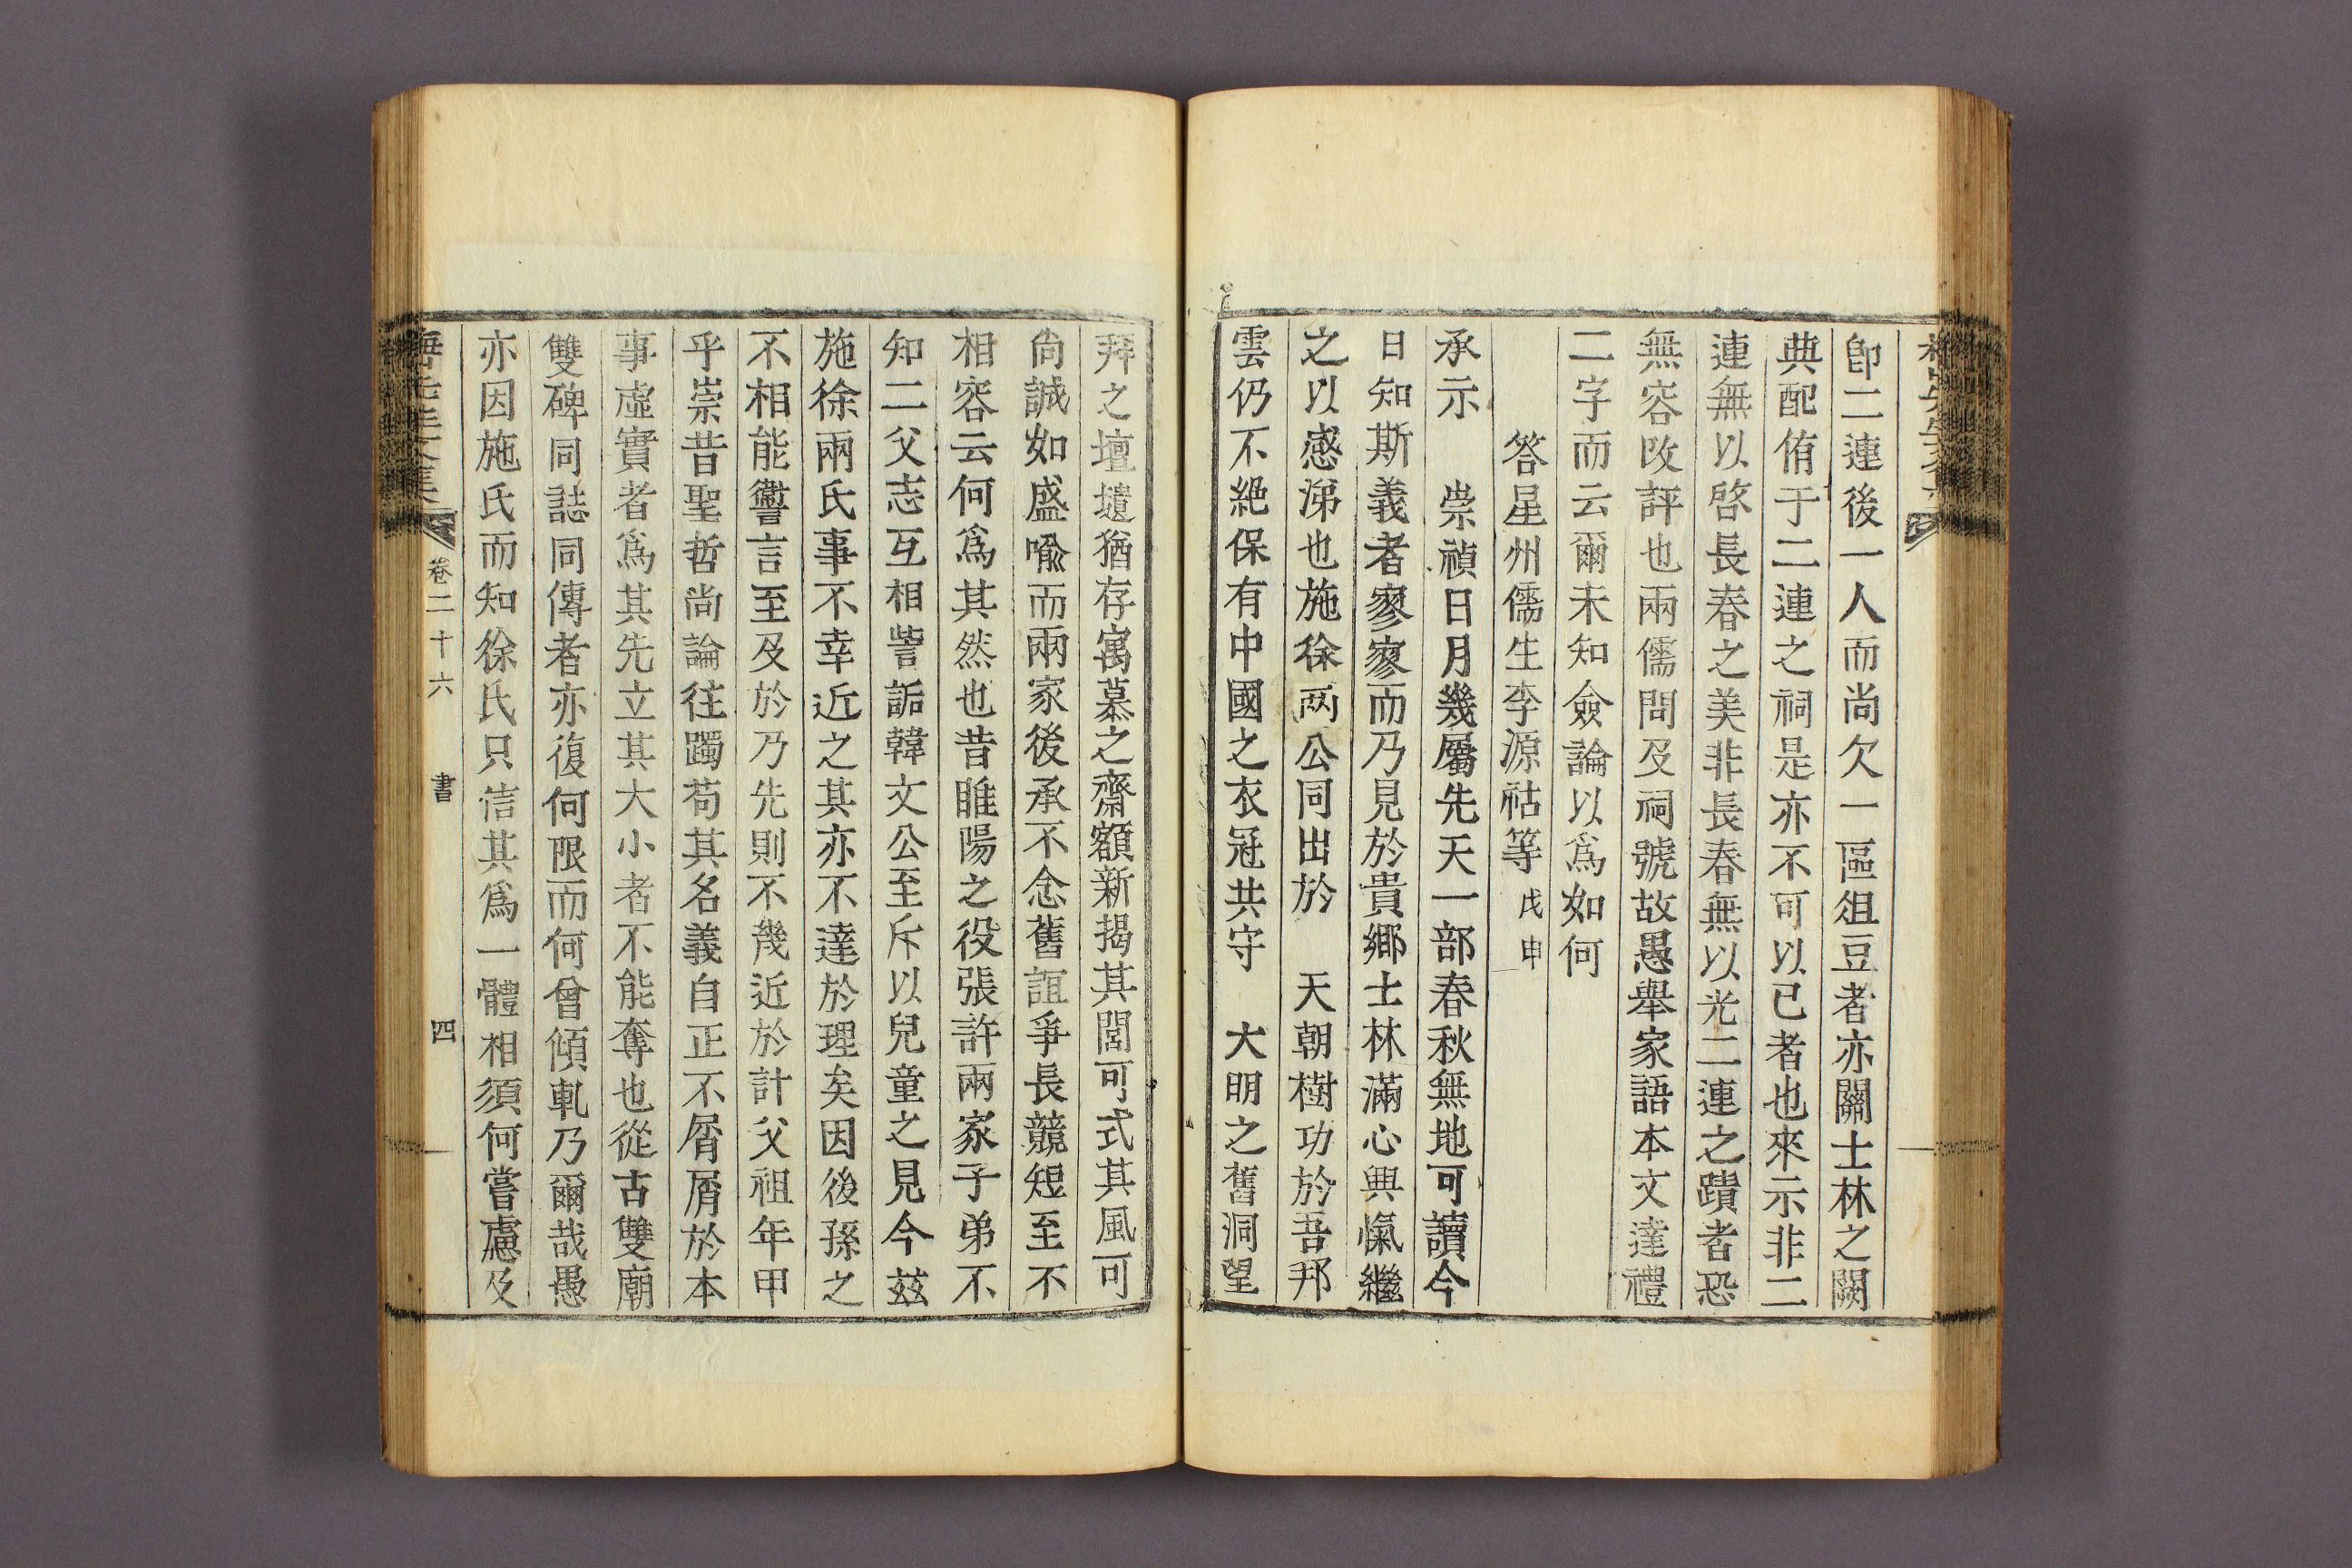 卽二連後一人而尚欠一區俎豆者亦關士林之闕
典配侑于二連之祠是亦不可以已者也來示非二
連無以啓長春之美非長春無以光二連之蹟者恐
無容改評也兩儒問及祠號故愚舉家語本文達禮
二字而云爾未知僉論以爲如何
答星州儒生李源祜等 戊申
承示 崇禎日月幾屬先天一部春秋無地可讀今
日知斯義者寥寥而乃見於貴鄉士林滿心興愾繼
之以感涕也施徐兩公同出於 天朝樹功於吾邦
雲仍不絶保有中國之衣冠共守 大明之舊洞望
拜之壇壝猶存寓慕之齋額新揭其閭可式其風可
尙誠如盛喩而兩家後承不念舊誼爭長競短至不
相容云何爲其然也昔睢陽之役張許兩家子弟不
知二父志互相訾詬韓文公至斥以兒童之見今玆
施徐兩氏事不幸近之其亦不達於理矣因後孫之
不相能讆言至及於乃先則不幾近於計父祖年甲
乎崇昔聖哲尙論往躅苟其名義自正不屑屑於本
事虛實者爲其先立其大小者不能奪也從古雙廟
雙碑同誌同傳者亦復何限而何曾傾軋乃爾哉愚
亦因施氏而知徐氏只信其爲一體相須何嘗慮及
卷二十六 書 四